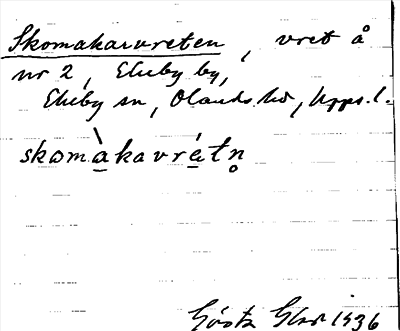 Skomakarvreten, vret å
nr 2, Ekeby by,
Ekeby sn, Olands hd, Upps. l.
skomà̱kavrá̱tn̥
Gösta 1936